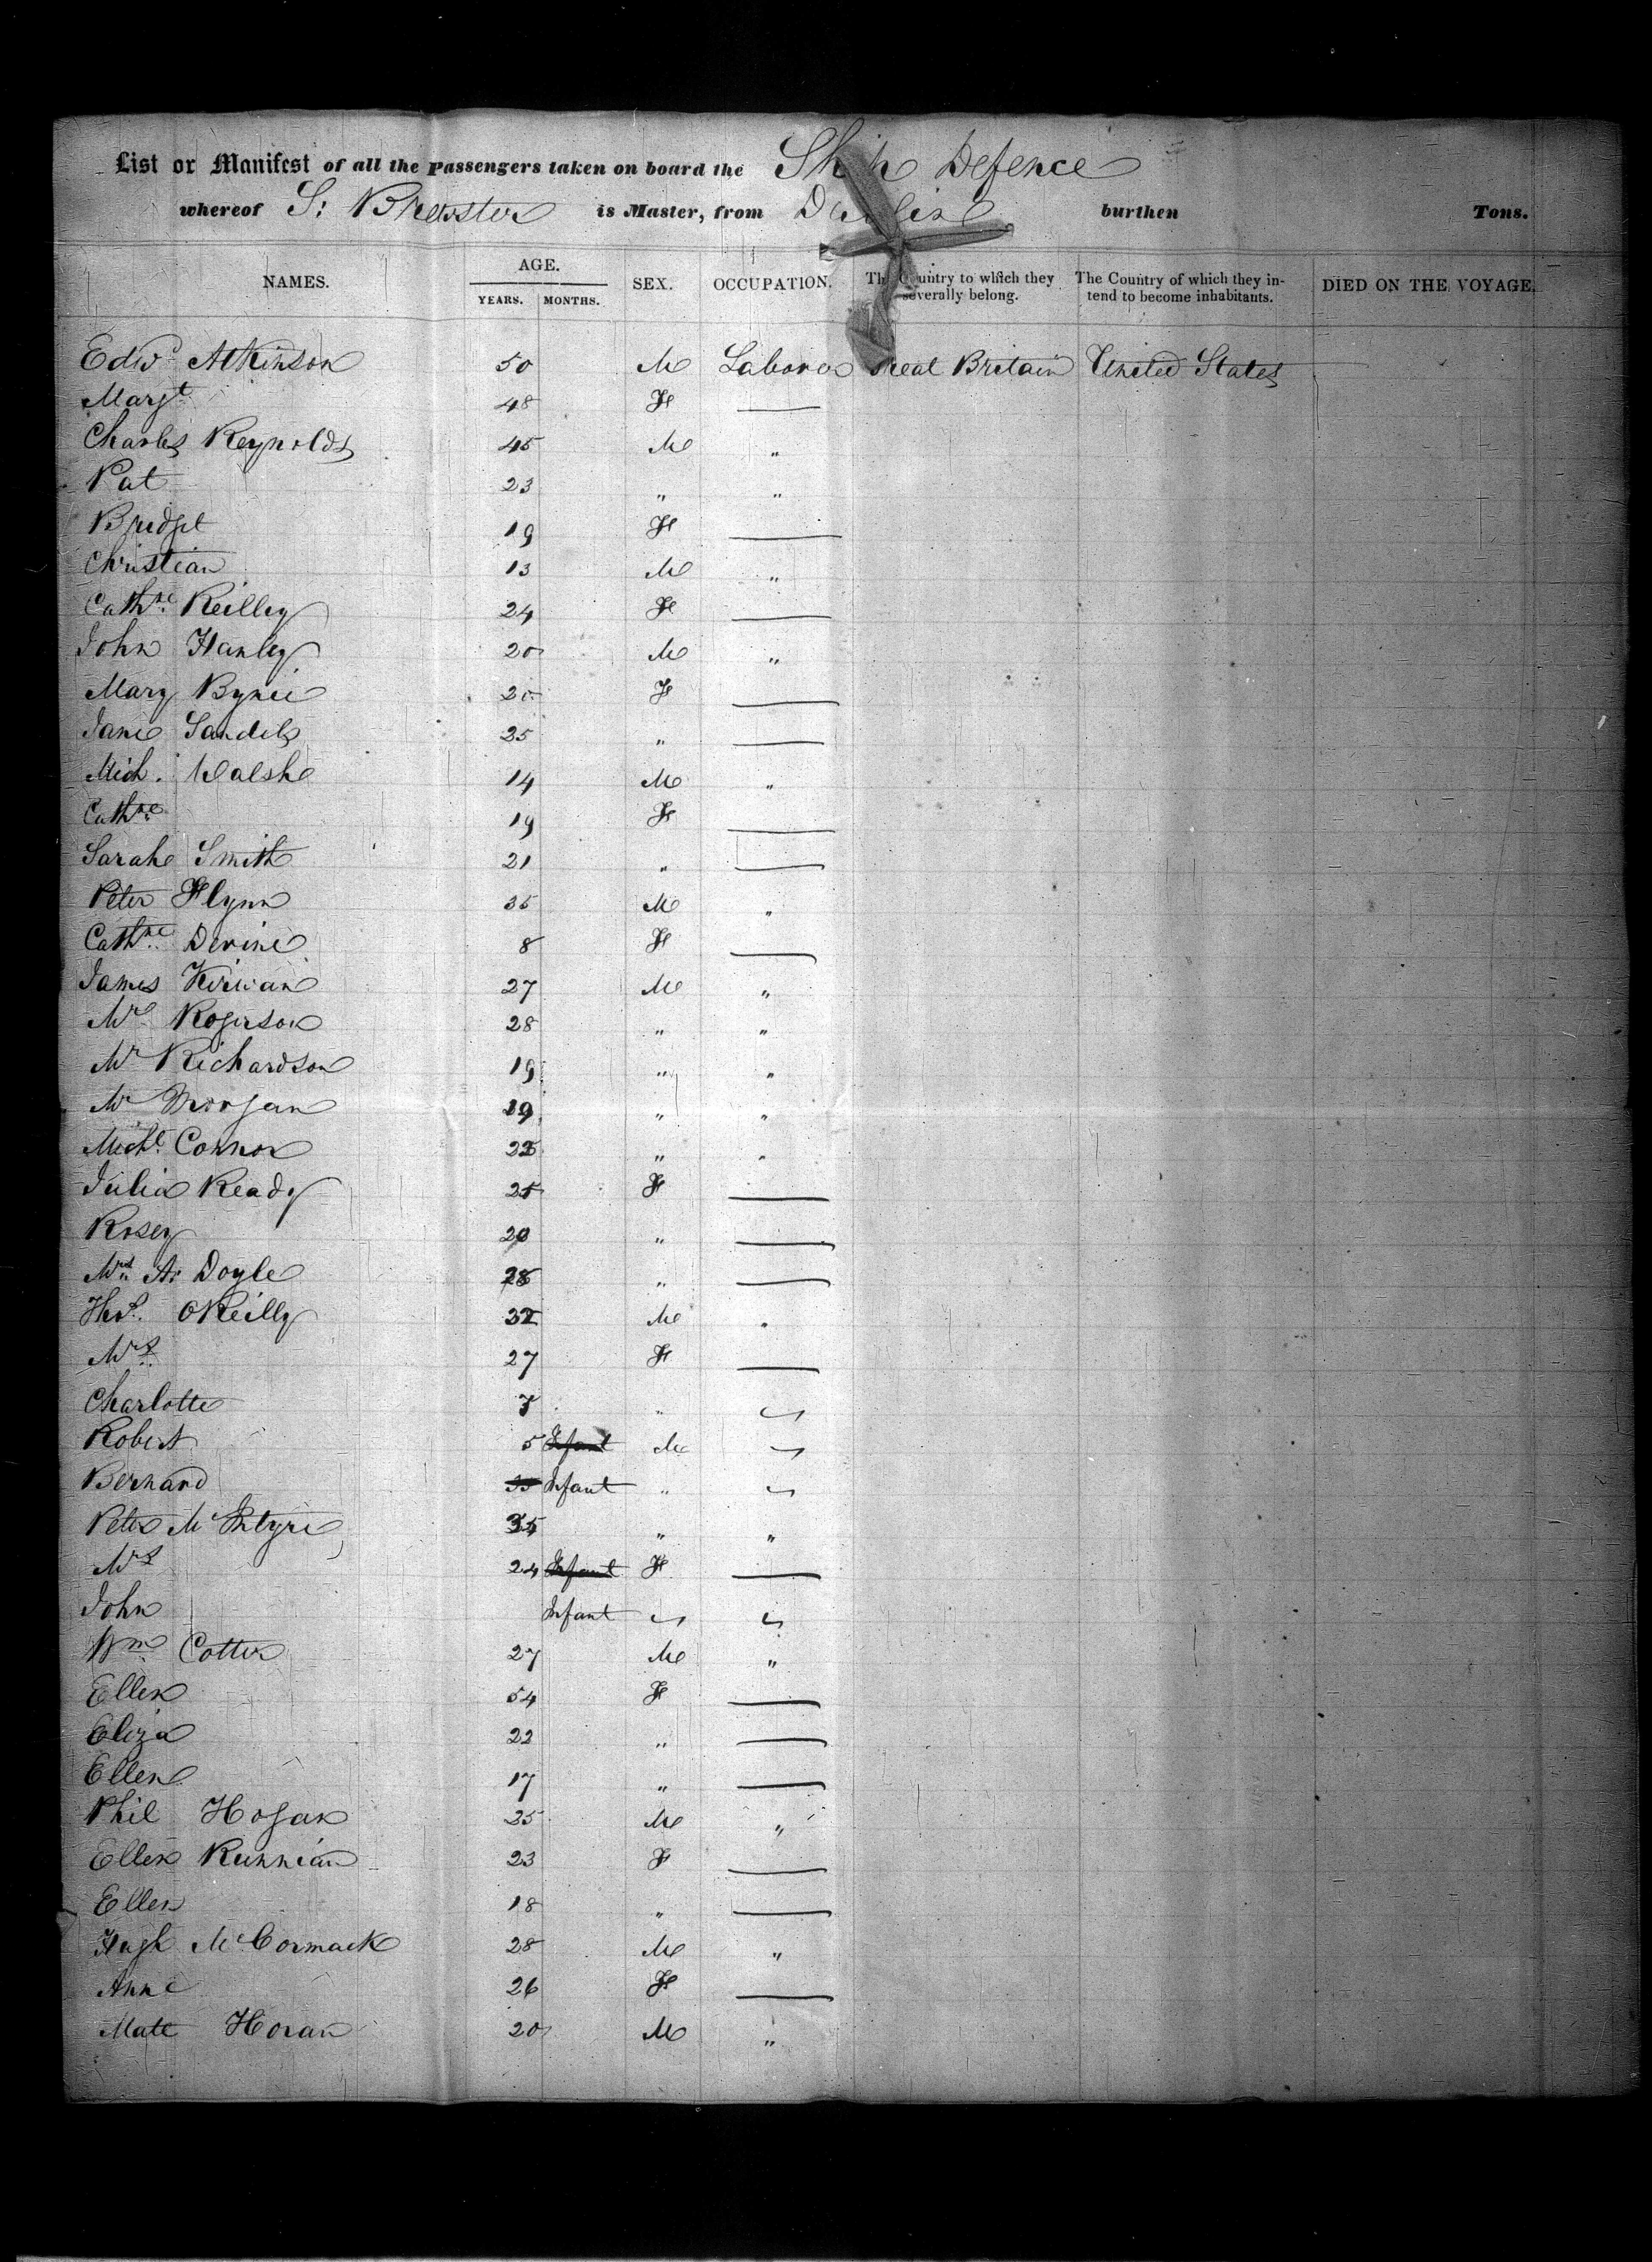 List or Manifest of all the Passengers taken on board the Ship Defence
whereof S: Brewster is Master, from Dublin burthen Tons.
NAMES. AGE. YEARS. MONTHS. SEX. OCCUPATION. The Country to which they severally belong. The Country of which they intend to become inhabitants. DIED ON THE VOYAGE.
Edwd Atkinson 50 M Laborer Great Britain United States
Margt 48 F —
Charles Reynolds 45 M "
Pat 23 " "
Bridget 19 F —
Christian 13 M "
Cathne Reilley 24 F —
John Hanley 20 M "
Mary Byrne 20 F —
Jane Sandels 25 " —
Mich. Walsh 14 M "
Cathne 19 F —
Sarah Smith 21 " —
Peter Flynn 35 M "
Cathne Devine 8 F —
James Kirwan 27 M "
Mr Rogerson 28 " "
Mr Richardson 19 " "
Mr Morgan 29 " "
Michl Connor "  "
Julia Ready 25 F —
Rosey 20 " —
Mrs A: Doyle 28 " —
Ths. OReilly 32 M "
Mrs 27 F —
Charlotte 7 "
Robert 5 Infant M
Bernard Infant "
Peter McIntyre 35 " "
Mrs 24 Infant F —
John Infant
Wm Cotter 27 M "
Ellen 54 F —
Eliza 22 " —
Ellen 17 " —
Phil Hogan 25 M "
Ellen Runnian 23 F —
Ellen 18 " —
Hugh McCormack 28 M "
Anne 26 F —
Matt Horan 20 M "